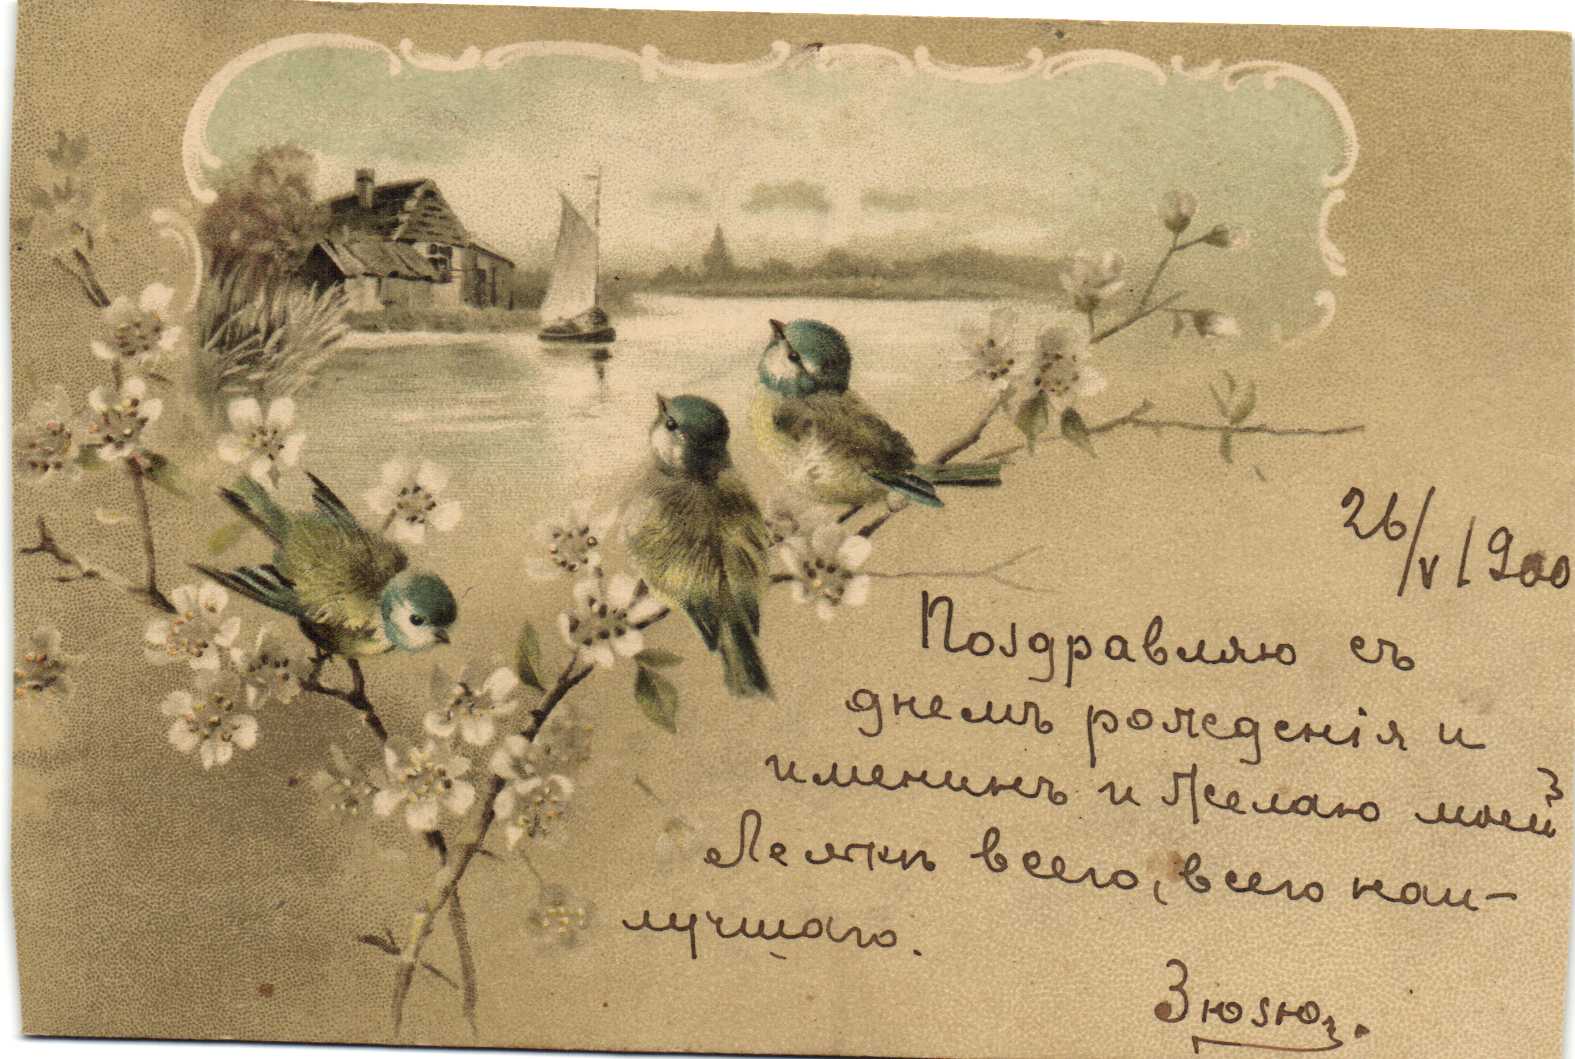 26/V 1900
Поздравляю съ
днемъ рожденія и
именинъ и желаю моей
Лелѣкѣ всего, всего наи-
лучшаго.
Зюзю.